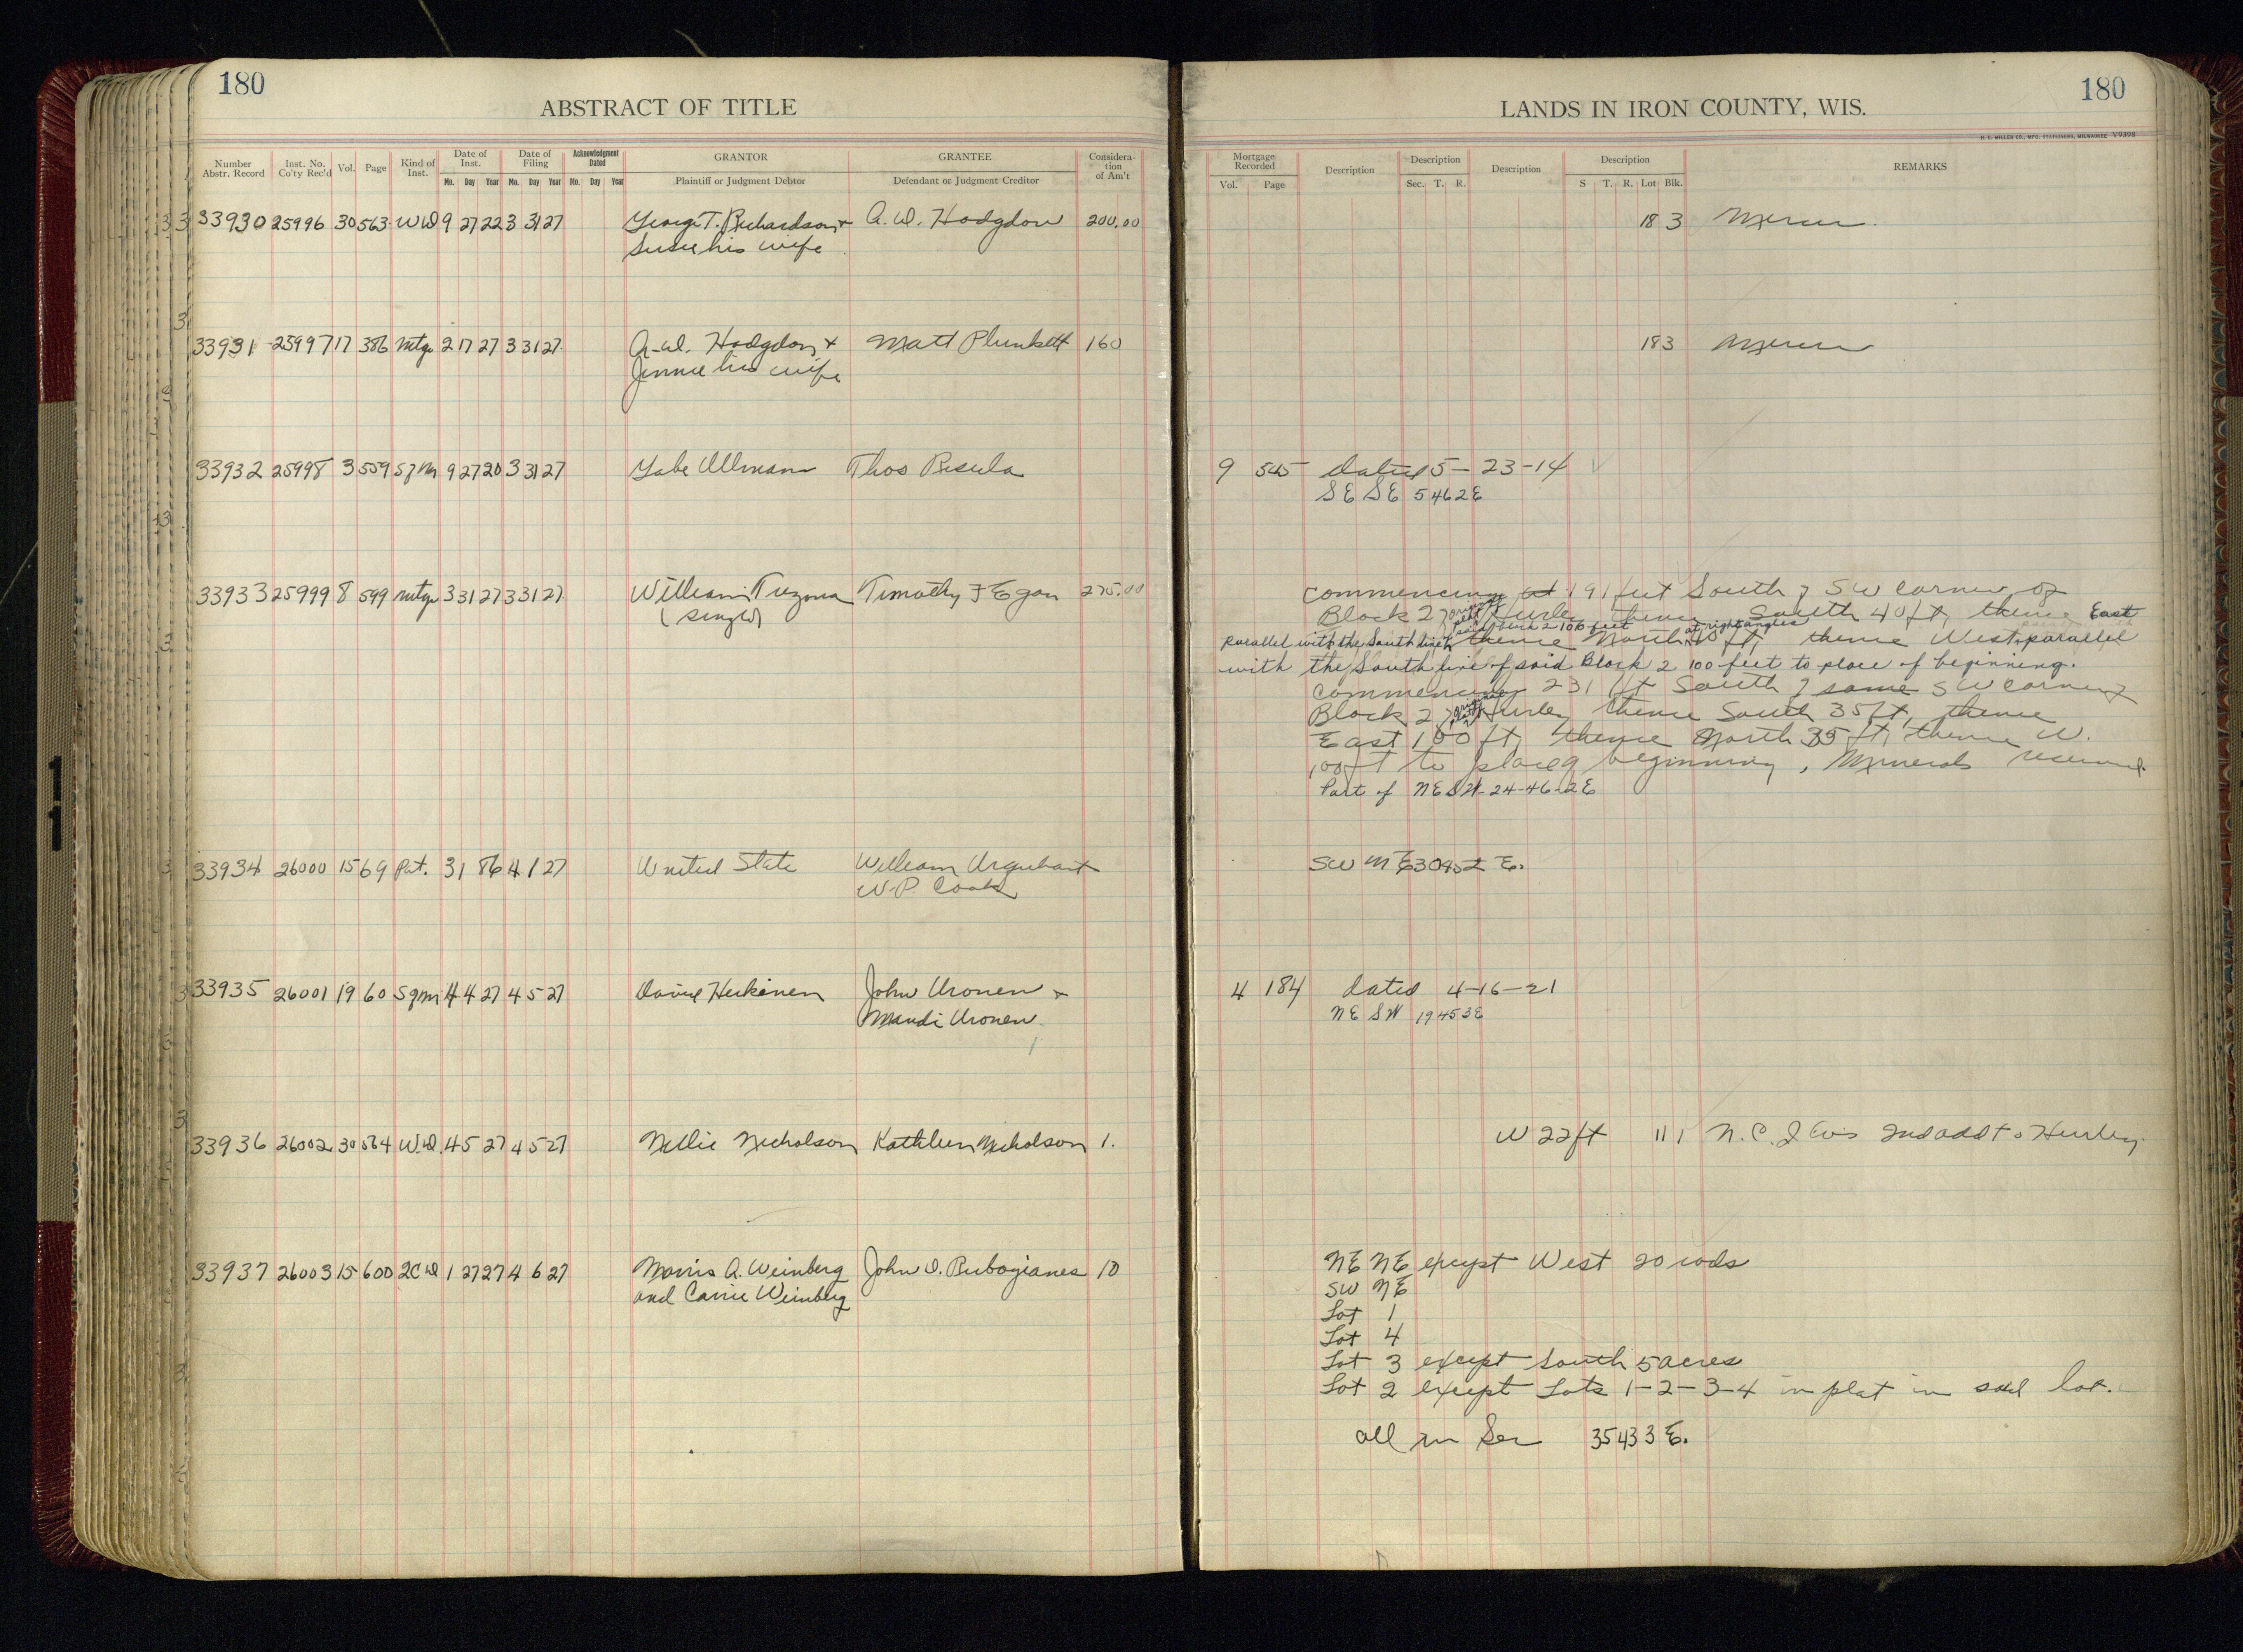 180
ABSTRACT OF TITLE
Number Abstr. Record | Inst. No. Co'ty Rec'd | Vol. | Page | Kind of Inst. | Date of Inst. Mo. Day Year | Date of Filing Mo. Day Year | Acknowledgment Dated Mo. Day Year | GRANTOR Plaintiff or Judgment Debtor | GRANTEE Defendant or Judgment Creditor | Consideration of Am't
33930 25996 30 563 WD 9 27 22 3 31 27 George T. Richardson + A. W. Hodgdon 200.00
Susie his wife
33931 25997 17 386 mtge 2 17 27 3 31 27 A. W. Hodgdon + Matt Plunkett 160
Jennie his wife
33932 25998 3 559 Sf M 9 27 20 3 31 27 Gabe Ullmann Thos Resula
33933 25999 8 599 mtge 3 31 27 3 31 27 William Trezona Timothy F Egan 275.00
(single)
33934 26000 15 69 Pat. 3 1 86 4 1 27 United State William Urquhart
W. P. Cook
33935 26001 19 60 Sgm 4 4 27 4 5 27 David Heikinen John Uronen +
Mandi Uronen
33936 26002 30 564 W.D. 4 5 27 4 5 27 Nellie Nicholson Kathleen Nicholson 1.
33937 26003 15 600 2CD 1 27 27 4 6 27 Morris A. Weinberg John D. Rubogianes 10
and Carrie Weinberg
180
LANDS IN IRON COUNTY, WIS.
H. C. MILLER CO., MFG. STATIONERS, MILWAUKEE Y9398
Mortgage Recorded Vol. Page | Description | Description Sec. T. R. | Description | Description S T. R. Lot Blk. | REMARKS
18 3 Mercer.
18 3 Mercer
9 545 dated 5-23-14
SE SE 5 46 2E
commencing at 191 feet South of SW corner of
Block 2 of original plat Hurley thence South 40 ft, thence East
parallel with the South line of said Block 2 100 feet thence North at right angles 40 ft, thence West parallel
with the South line of said Block 2 100 feet to place of beginning.
commencing 231 ft South of same SW corner of
Block 2 of original plat Hurley thence South 35 ft, thence
East 100 ft, thence North 35 ft, thence W.
100 ft to place of beginning, Minerals reserved.
Part of NE SW-24-46-2E
SW NE 30 45 2 E.
4 184 dated 4-16-21
NE SW 19 45 3E
W 22 ft 11 1 N. C. I Co's 2nd add to Hurley.
NE NE except West 20 rods
SW NE
Lot 1
Lot 4
Lot 3 except South 5 acres
Lot 2 except Lots 1-2-3-4 in plat in said lot.
all in Sec 35 43 3 E.